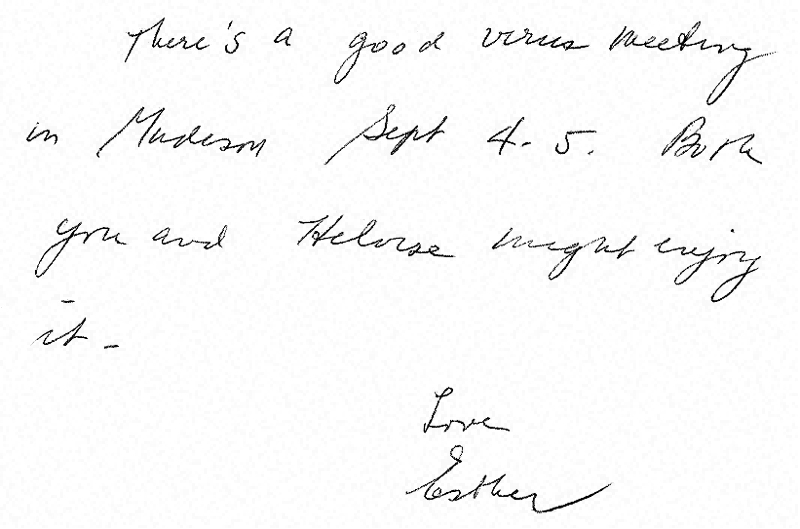 There's a good virus meeting
in Madison Sept 4-5. Both
you and Heloise might enjoy
it -
Love
Esther